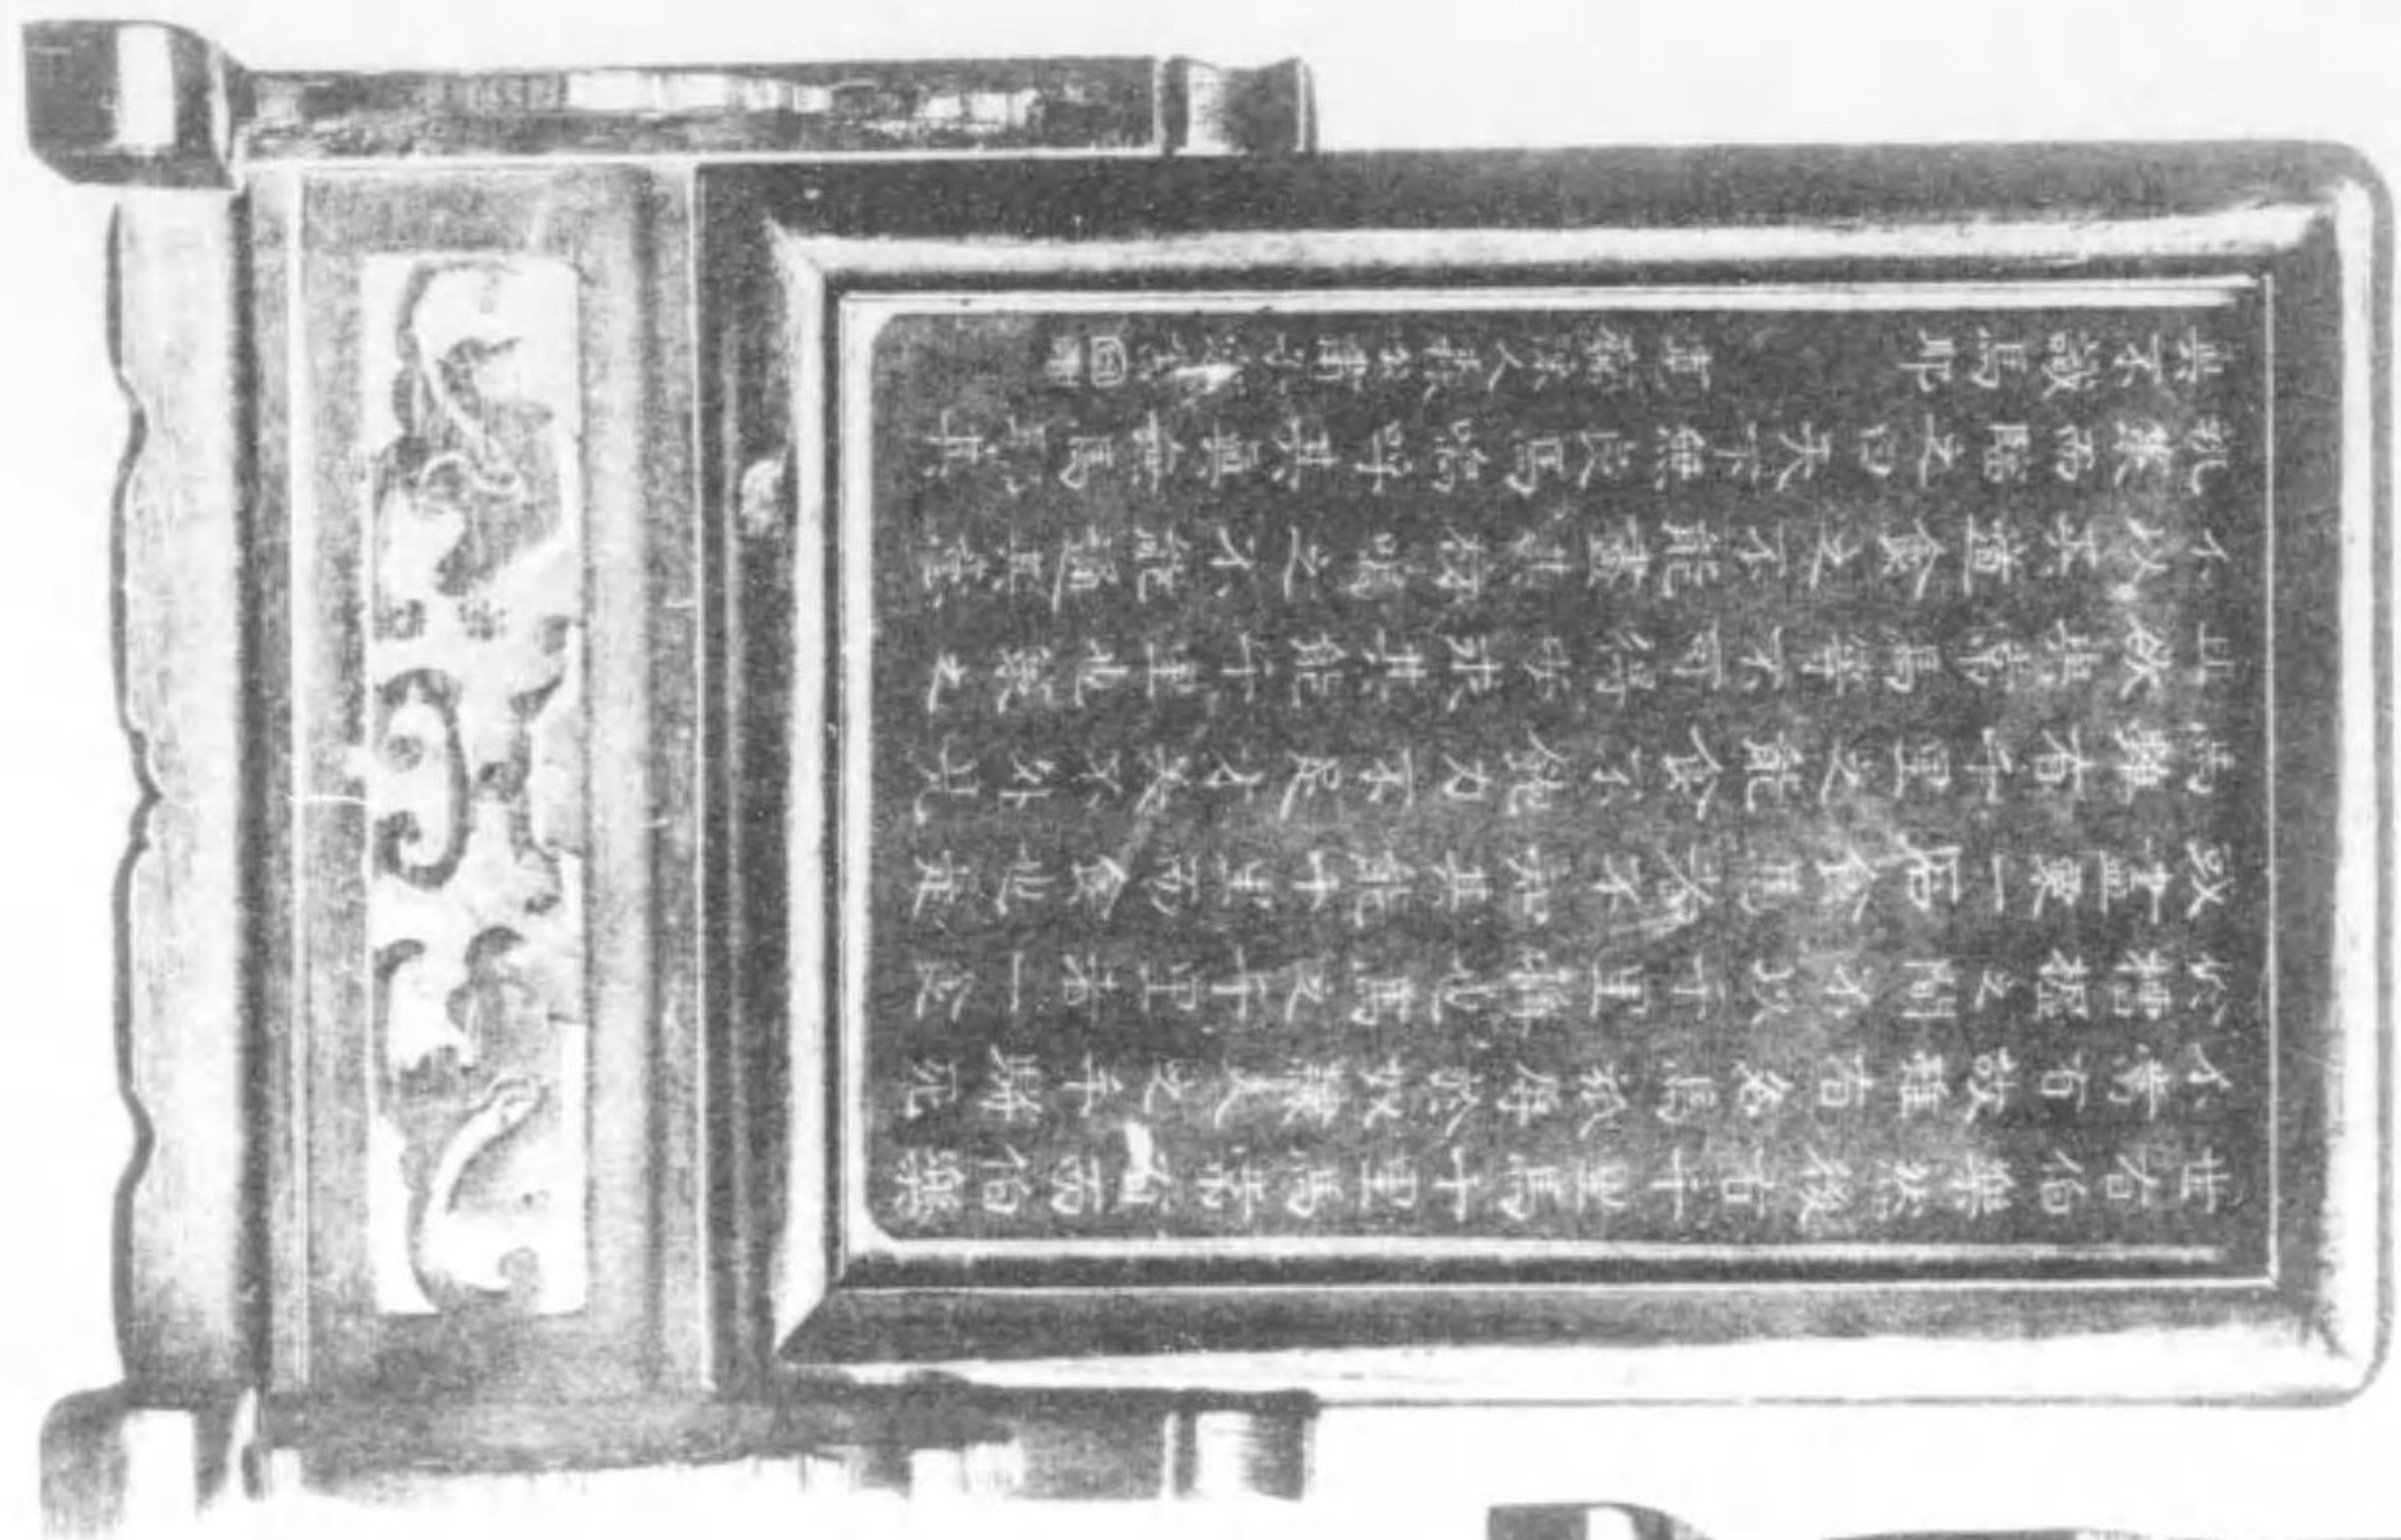 世有伯樂然後有千里馬千里馬常有而伯樂
不常有故雖有名馬祇辱於奴隸人之手駢死
於槽櫪之間不以千里稱也馬之千里者一食
或盡粟一石食馬者不知其能千里而食也是
馬雖有千里之能食不飽力不足才美不外見
且欲與常馬等不可得安求其能千里也策之
不以其道食之不能盡其材鳴之不能通其意
執策而臨之曰天下無良馬嗚呼其真無馬耶其
真不識馬耶